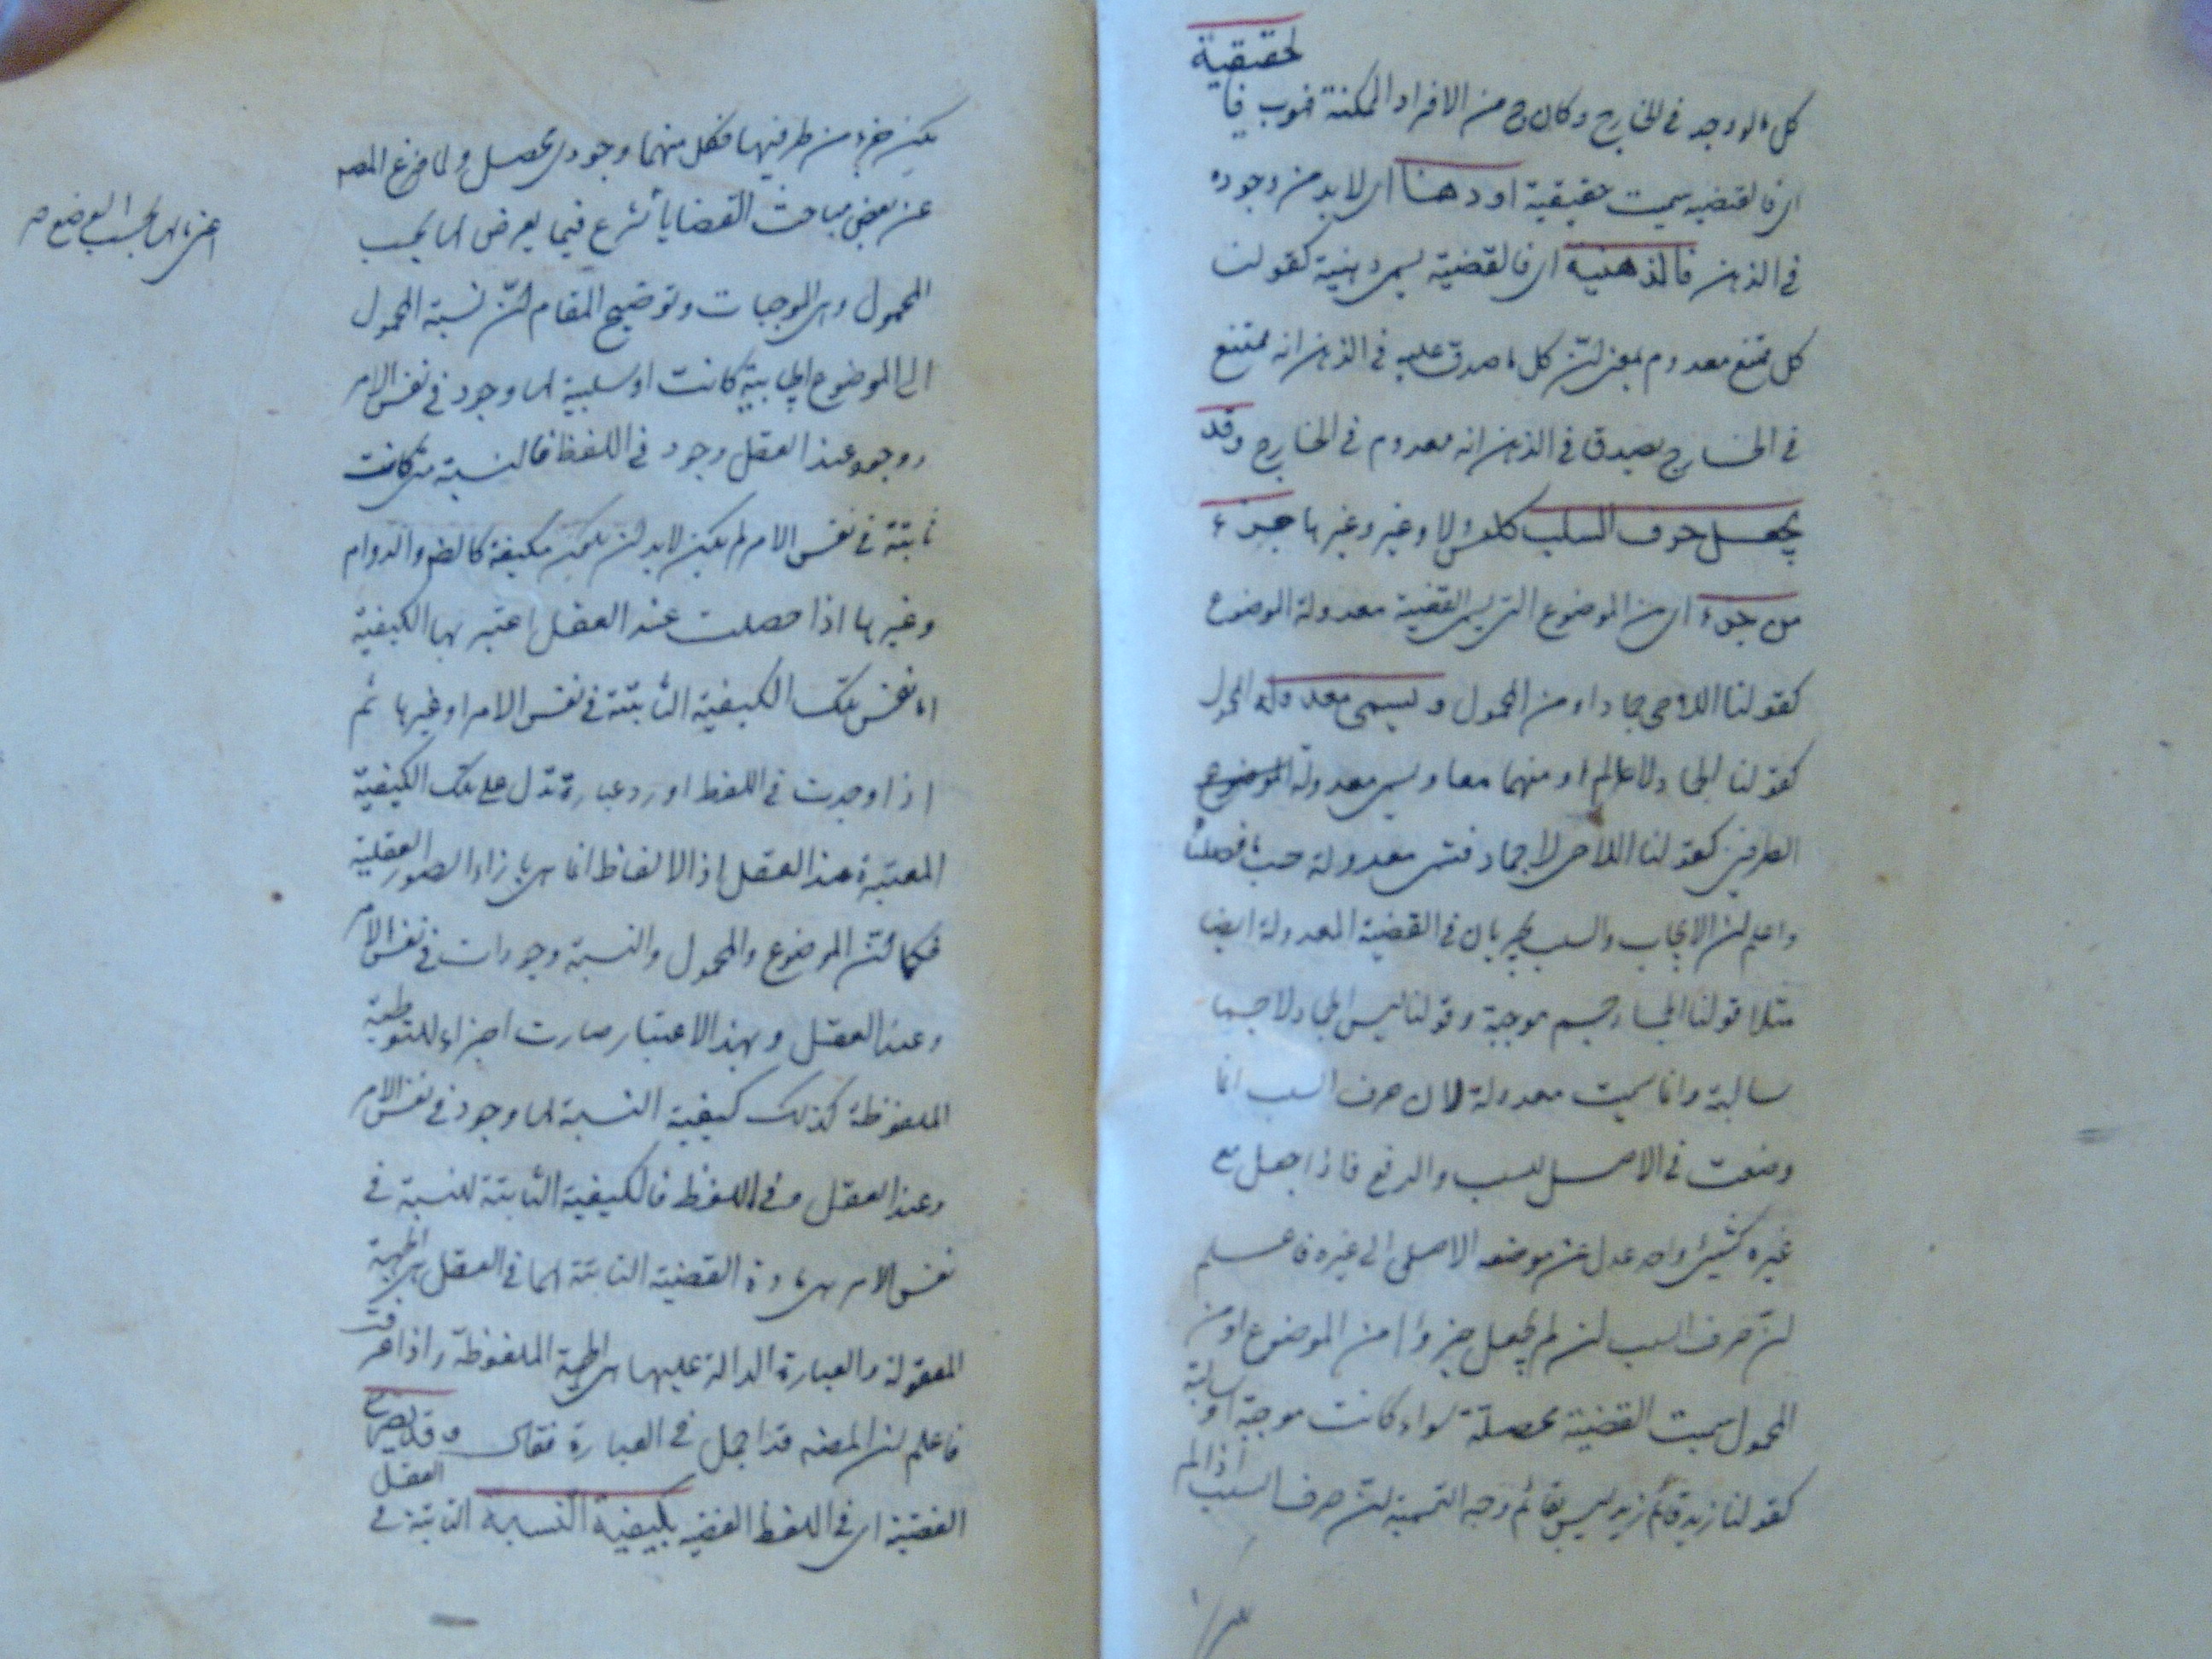 كل ما لو وجد في الخارج وكان ج من الافراد الممكنة فهو ب فا
لحقيقية
اى فالقضيه سميت حقيقية او ذهنا اى لا بد من وجوده
في الذهن فالذهنيه اى فالقضية يسمى ذهنية كقولنا
كل ممتنع معدوم بمعنى ان كل ما صدق عليه في الذهن انه ممتنع
في الخارج يصدق في الذهن انه معدوم في الخارج وقد
يجعل حرف السلب كليس ولا وغير وغيرها جزء
من جزء اى من الموضوع التى يسمى القضية معدولة الموضوع
كقولنا اللاحى جماد او من المحمول ويسمى معدولة المحمول
كقولنا الجماد لا عالم او منهما معا ويسمى معدولة الموضوع
الطرفين كقولنا اللاحى لا جماد فتسمى معدولة حسب ما فصلنا
واعلم ان الايجاب والسلب يجريان في القضية المعدولة ايضا
مثلا قولنا الجماد جسم موجبة وقولنا ليس الجماد لا جسما
سالبة وانما سميت معدولة لان حرف السلب انما
وضعت في الاصل للسلب والرفع فاذا جعل مع
غيره كشيئ واحد عدل عن موضعه الاصلى الى غيره فاعلم
ان حرف السلب ان لم يجعل جزءا من الموضوع او من
المحمول سميت القضية محصلة سواء كانت موجبة او سالبة
كقولنا زيد قائم زيد ليس بقائم وجه التسمية ان حرف السلب اذا لم
يكن جزء من طرفيها فكل منهما وجودى محصل ولما فرغ المصـ
عن بعض مباحث القضايا شرع فيما يعرض لها بحسب
المحمول وهى الموجهات وتوضيح المقام ان نسبة المحمول
الى الموضوع ايجابية كانت او سلبية لها وجود في نفس الامر
ووجود عند العقل ووجود في اللفظ فالنسبة متى كانت
ثابتة في نفس الامر لم يكن لا بد ان يكون مكيفة كالضر والدوام
وغيرها اذا حصلت عند العقل اعتبر لها الكيفية
اما نفس تلك الكيفية الثابتة في نفس الامر او غيرها ثم
اذا وجدت في اللفظ اورد عبارة تدل على تلك الكيفية
المعتبرة عند العقل اذ الالفاظ انما هى بازاء الصور العقلية
فكما ان للموضوع والمحمول والنسبة وجودات في نفس الامر
وعند العقل وبهذا الاعتبار صارت اجزاء للقضية
الملفوظة كذلك كيفية النسبة لها وجود في نفس الامر
وعند العقل وفي اللفظ فالكيفية الثابتة للنسبة في
نفس الامر هى مادة القضية الثابتة لها في العقل هى الجهة
المعقولة والعبارة الدالة عليها هى الجهة الملفوظة واذا عرفت
فاعلم ان المصنه قد اجمل في العبارة فقال وقد يصرح
القضية اى في اللفظ القضية بكيفية النسبة الثابتة في
العقل